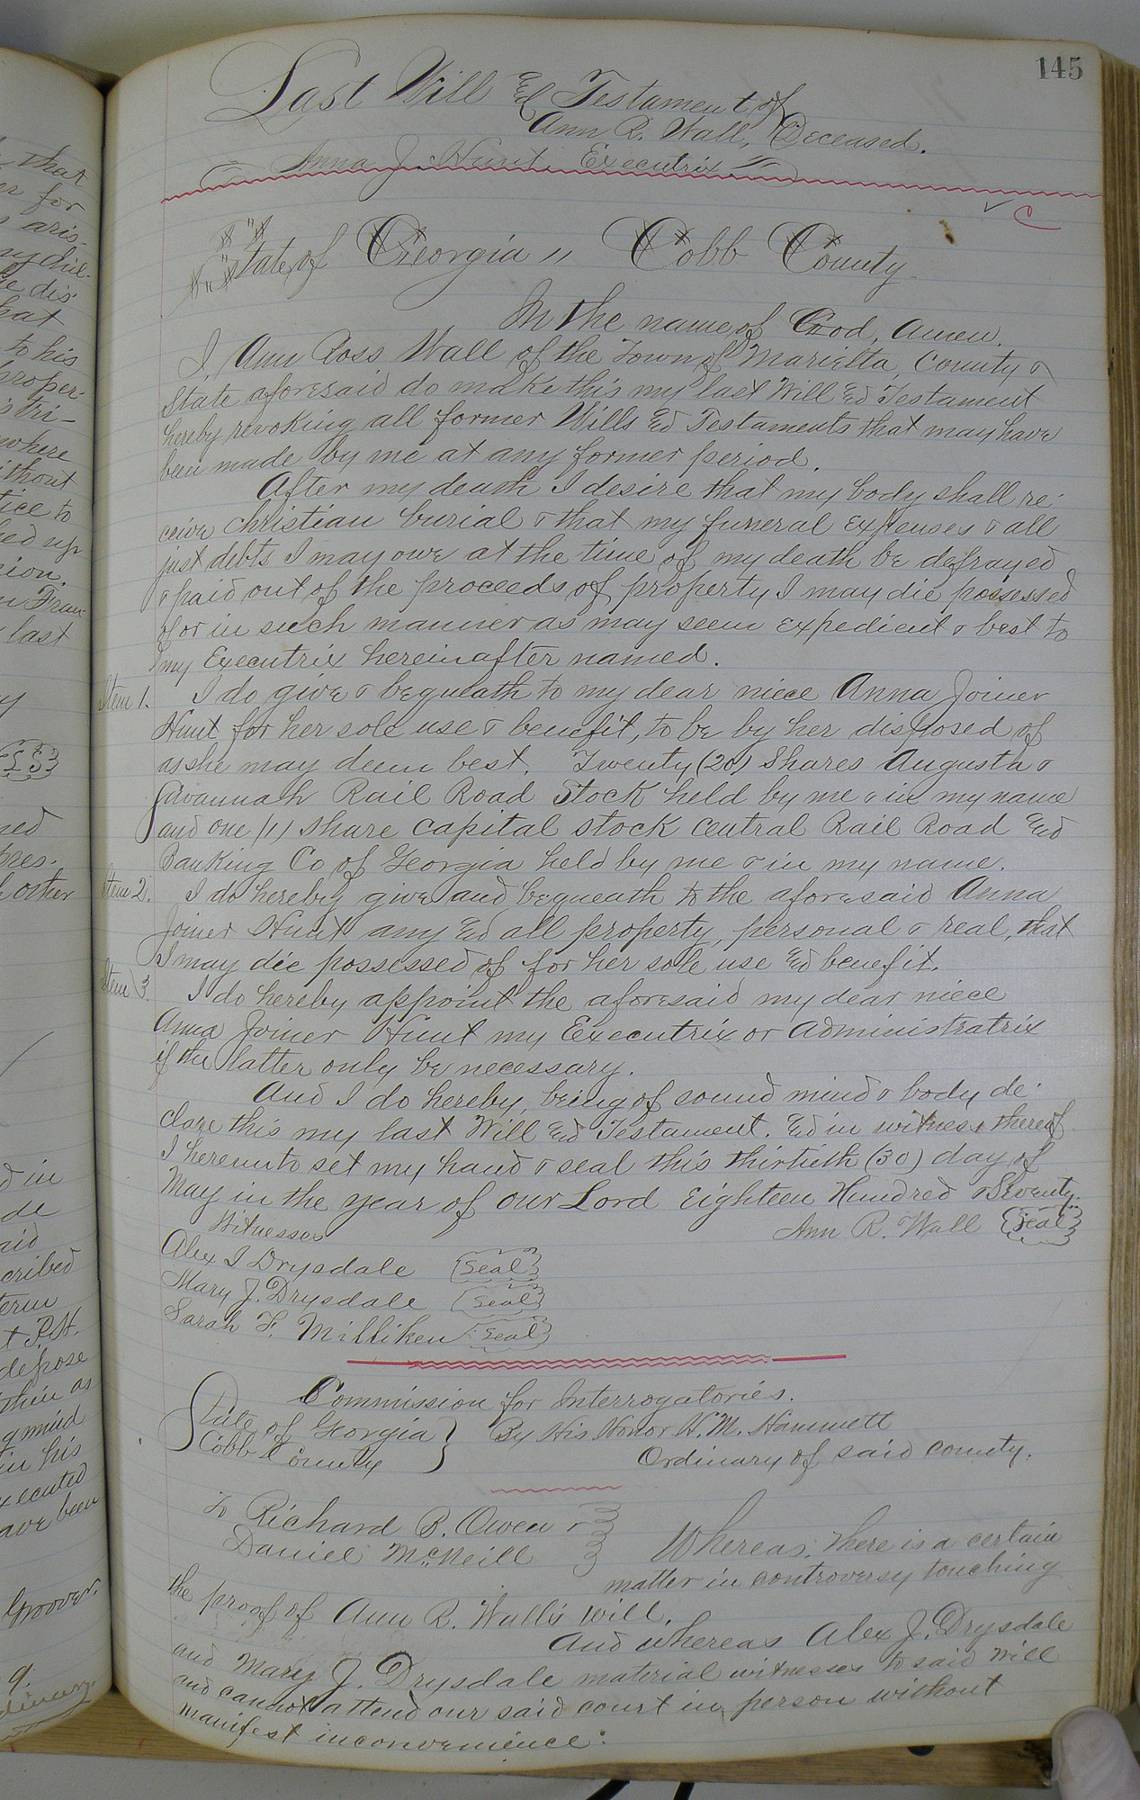 145
Last Will & Testament of
Ann R. Wall, Deceased.
Anna J. Hunt, Executrix.
C
State of Georgia " Cobb County
In the name of God, Amen.
I, Ann Ross Wall of the Town of Marietta, County &
State aforesaid do make this my last Will & Testament
hereby revoking all former Wills & Testaments that may have
been made by me at any former period.
After my death I desire that my body shall re-
ceive Christian burial & that my funeral expenses & all
just debts I may owe at the time of my death be defrayed
& paid out of the proceeds of property I may die possessed
of or in such manner as may seem expedient & best to
my Executrix hereinafter named.
Item 1. I do give & bequeath to my dear niece Anna Joiner
Hunt for her sole use & benefit, to be by her disposed of
as she may deem best. Twenty (20) Shares Augusta &
Savannah Rail Road Stock held by me & in my name
and one (1) share capital stock Central Rail Road &
Banking Co, of Georgia held by me & in my name.
Item 2. I do hereby give and bequeath to the aforesaid Anna
Joiner Hunt any & all property, personal & real, that
I may die possessed of for her sole use & benefit.
Item 3. I do hereby appoint the aforesaid my dear niece
Anna Joiner Hunt my Executrix or Administratrix
if the latter only be necessary.
And I do hereby, being of sound mind & body de-
clare this my last Will & Testament. & in witness thereof
I hereunto set my hand & seal this thirtieth (30) day of
May in the year of our Lord Eighteen Hundred & Seventy.
Witnesses Ann R. Wall (Seal)
Alex I Drysdale (Seal)
Mary J. Drysdale (Seal)
Sarah F. Milliken (Seal)
Commission for Interrogatories.
State of Georgia } By His Honor H. M. Hammett
Cobb County } Ordinary of said county.
To Richard B. Owen &
Daniel McNeill Whereas, there is a certain
matter in controversy touching
the proof of Ann R. Wall's will.
And whereas Alex J. Drysdale
and Mary J. Drysdale material witnesses to said will
and cannot attend our said court in person without
manifest inconvenience: